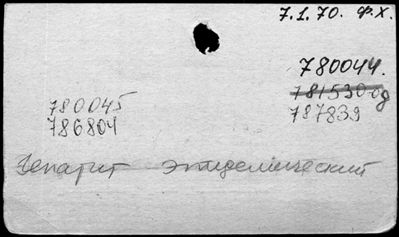 7.1.70. Ф.Х.
780044.
781530 од
787839
780045
786804
Гепатит эпидемический